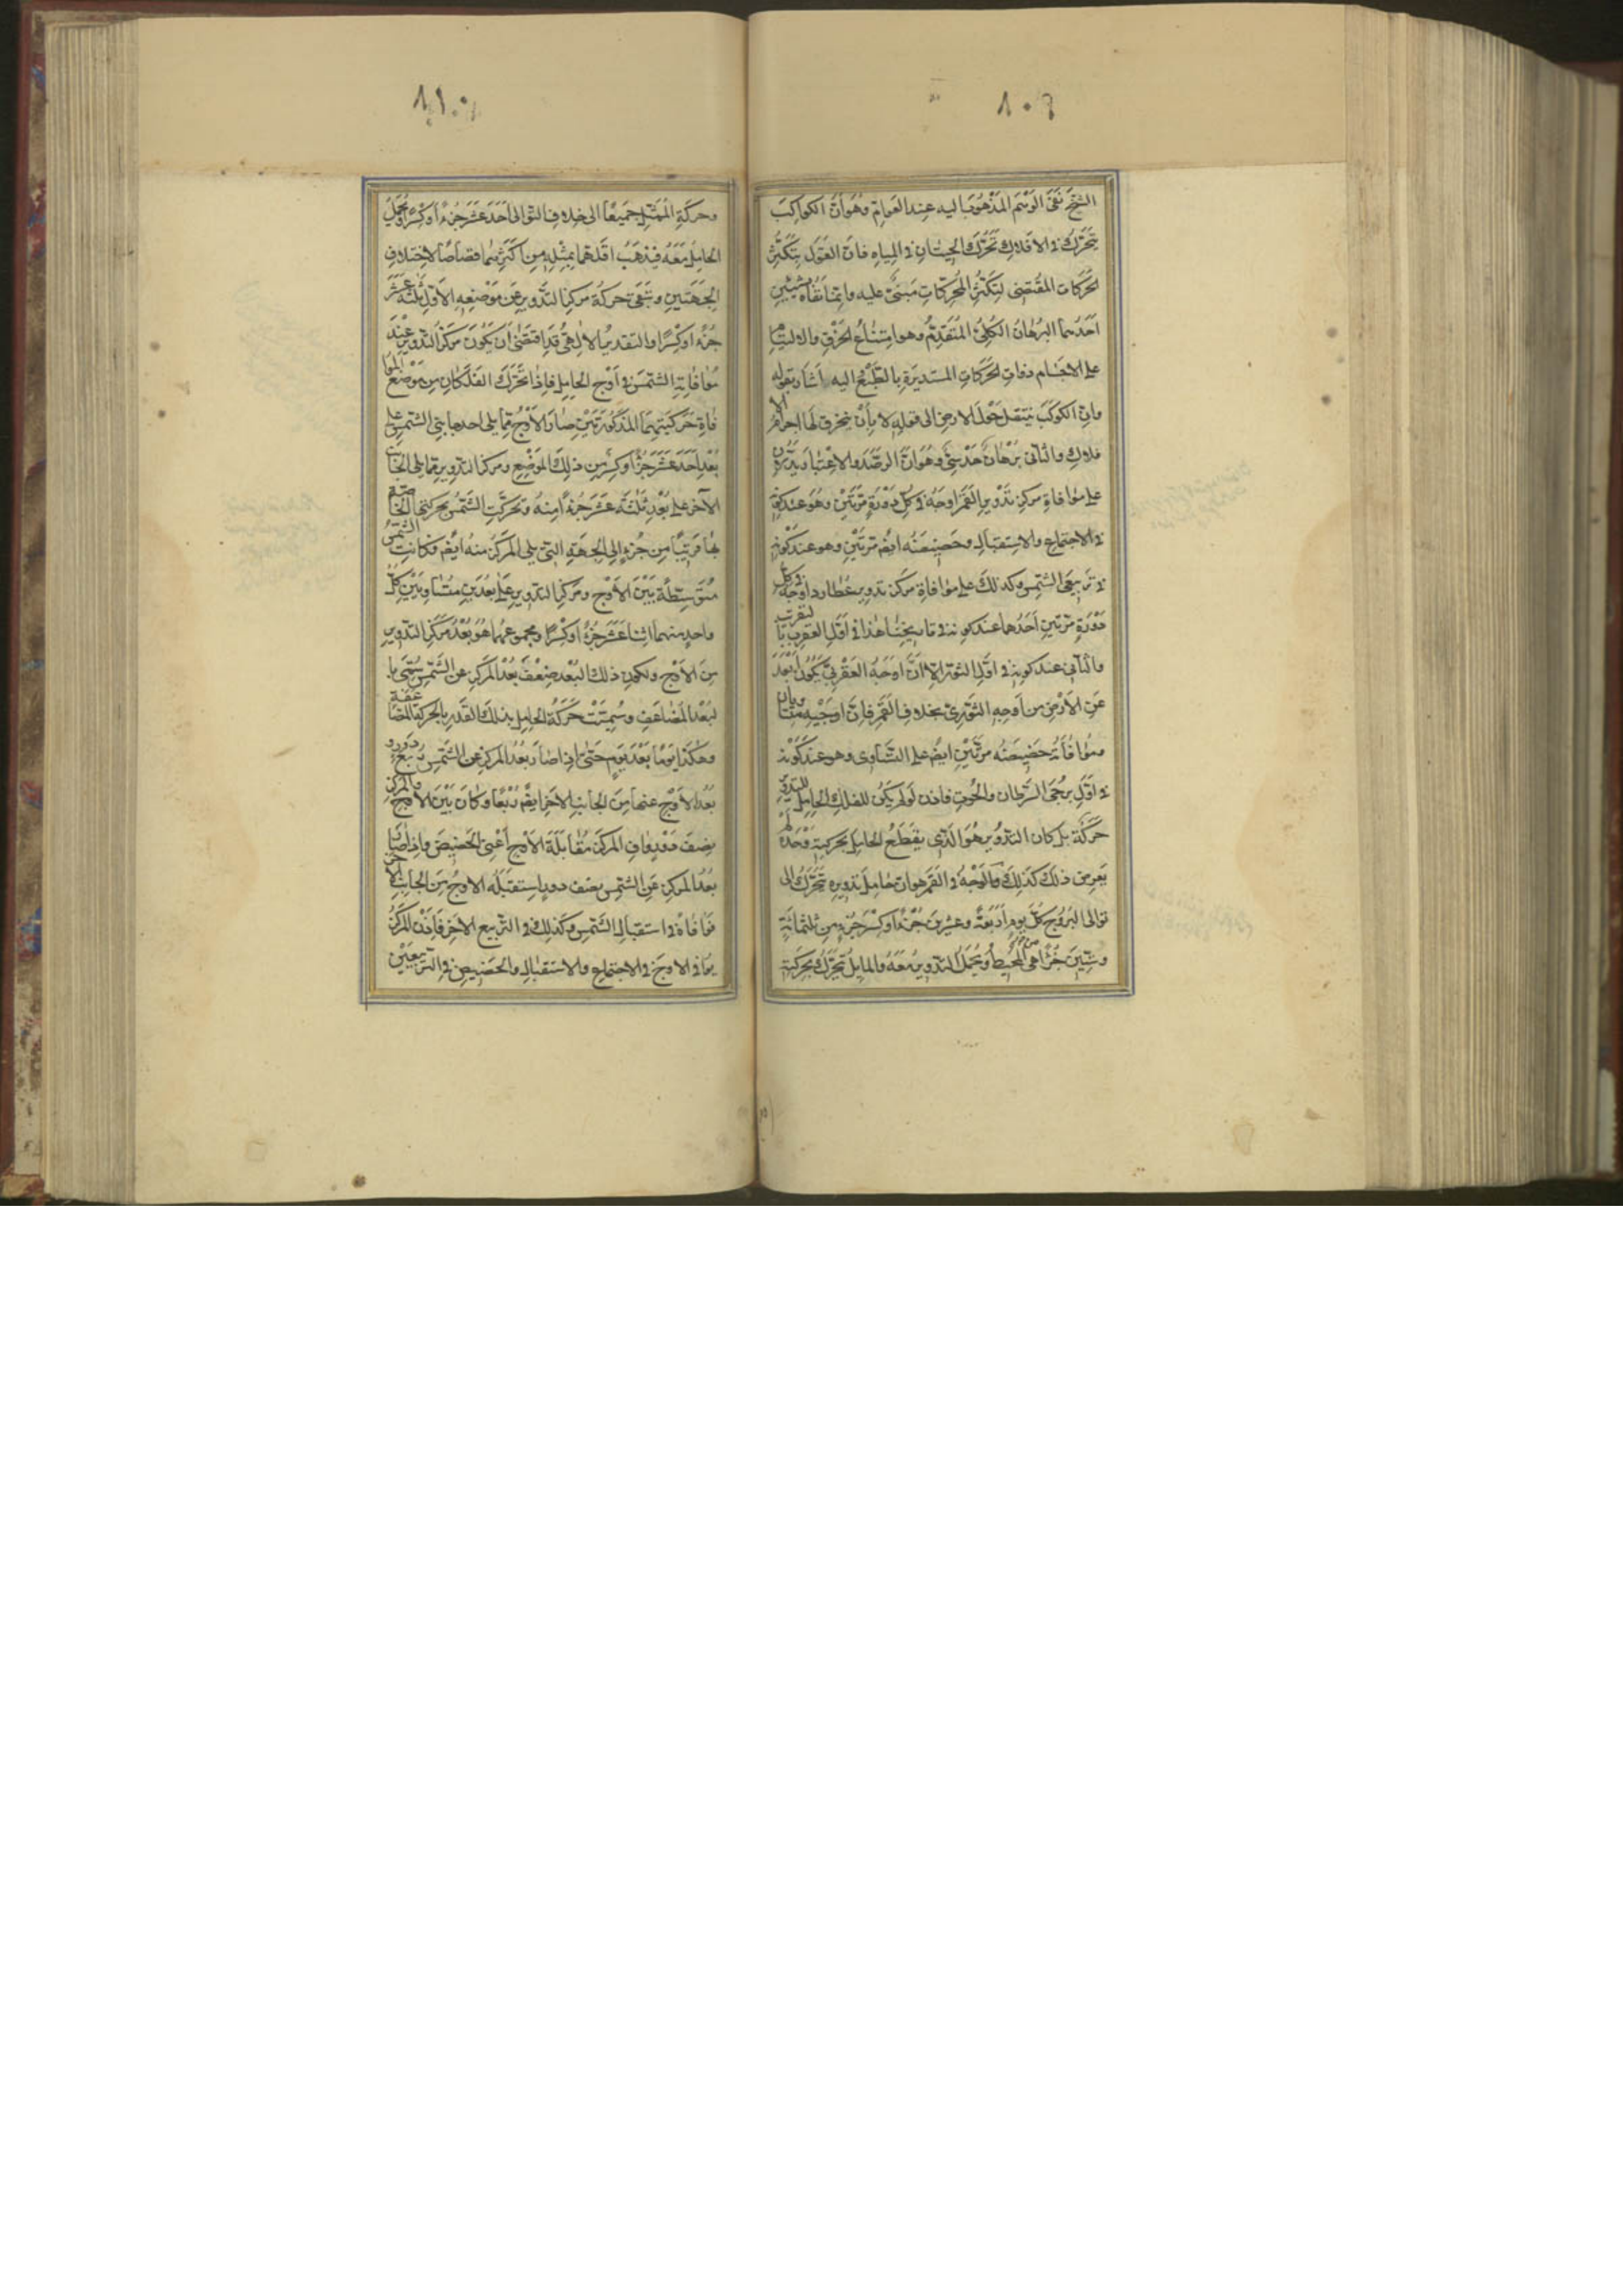 ٨٠٩
الشيخ نفى الوهم المذهوب اليه عند العوام وهو ان الكواكب
يتحرك في الافلاك تحرك الحيتان في المياه فان القول بتكثر
الحركات المقتضى لتكثر المحركات مبنى عليه وانما نفاه بشيئين
احدهما البرهان الكلى المتقدم وهو امتناع الخرق والالتيام
على الاجسام ذوات الحركات المستديرة بالطبع اليه اشار بقوله
وان الكوكب ينتقل حول الارض الى قوله لا بأن ينخرق لها اجرام الا
فلاك والثانى برهان حدسى وهو ان الرصد والاعتبار يدلان
على موافاة مركز تدوير القمر اوجه في كل دورة مرتين وهو عند كونه
في الاجتماع والاستقبال وحضيضه ايضم مرتين وهو عند كونه
في تربيعى الشمس وكذلك على موافاة مركز تدوير عطارد اوجه في كل
دورة مرتين احدهما عند كونه في تاريخنا هذا في اول العقرب بالتقريب
والثانى عند كونه في اول الثور الا ان اوجه العقربى يكون ابعد
عن الارض من اوجه الثورى بخلاف القمر فان اوجيه متساويان
وموافاته حضيضه مرتين ايضم على التساوى وهو عند كونه
في اول برجى السرطان والحوت فاذن لو لم يكن للفلك الحامل للتدوير
حركة بل كان التدوير هو الذى يقطع الحامل بحركته وحده لم
يعرض ذلك كذلك والوجه في القمر هو ان حامل تدويره تتحرك الى
توالى البروج كل يوم اربعة وعشرين جزءا وكسر جزء من ثلثمائة
وستين جزءا هى المحيط ويحمل التدوير معه والمايل يتحرك بحركته
٨١٠
وحركة الممثل جميعا الى خلاف التوالى احد عشر جزءا وكسرا ويحمل
الحامل معه فيذهب اقلهما بمثله من اكثرهما قصاصا لاختلاف
الجهتين وتبقى حركة مركز التدوير عن موضعه الاول ثلثة عشر
جزء او كسرا والتقدير الالهى قد اقتضى ان يكون مركز التدوير عند
موافاته الشمس في اوج الحامل فاذا تحرك الفلكان من موضع الموا
فاة حركتيهما المذكورتين صار الاوج مما يلى احد جانبى الشمس على
بعد احد عشر جزءا وكسر من ذلك الموضع ومركز التدوير مما يلى الجانب
الآخر على بعد ثلثة عشر جزءا منه وتحركت الشمس بحركتها الخاصة
بها قريبا من جزء الى الجهة التى يلى المركز منه ايضم فكانت الشمس
متوسطة بين الاوج ومركز التدوير على بعدين متساويين كل
واحد منهما اثنا عشر جزء او كسرا ومجموعهما هو بعد مركز التدوير
من الاوج ولكون ذلك البعد ضعف بعد المركز عن الشمس سمى با
لبعد المضاعف وسميت حركة الحامل بذلك القدر بالحركة المضاعفة
وهكذا يوما بعد يوم حتى اذا صار بعد المركز عن الشمس ربع دورة و
بعد الاوج عنها من الجانب الاخر ايضم ربعا وكان بين الاوج والمركز
نصف دور وافى المركز مقابلة الاوج اعنى الحضيض واذا صار
بعد المركز عن الشمس نصف دور استقبله الاوج من الجانب الاخر
فوافاه في استقبال الشمس وكذلك في التربيع الاخر فاذن المركز
يوافى الاوج في الاجتماع والاستقبال والحضيض في التربيعين